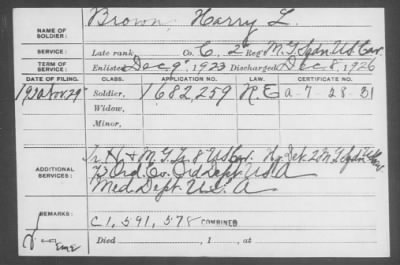 NAME OF SOLDIER: Brown, Harry L.
SERVICE: Late rank, Co. C, 2d Reg't M. G. Sqdn. U.S. Cav.
TERM OF SERVICE: Enlisted Dec 9, 1923 Discharged Dec. 8, 1926
DATE OF FILING. CLASS. APPLICATION NO. LAW. CERTIFICATE NO.
Nov 29 Soldier, 1682,259 R.E. a-7 28-31
Widow,
Minor,
ADDITIONAL SERVICES: Tr. H & M. G. Tr. 8" U.S. Cav. Hq. Det. 2 M. G. Sqdn. U.S. Cav
Ord. Co. Ord. Dept. U.S.A
Med. Dept. U.S.A
REMARKS: C 1,591,578 COMBINED
Died , 1 , at